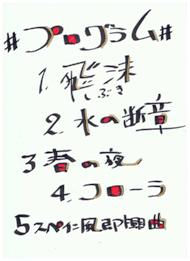 #プログラム#
1. 飛沫
しぶき
2. 水の断章
3 春の夜
4. コローラ
5 スペイン風即興曲